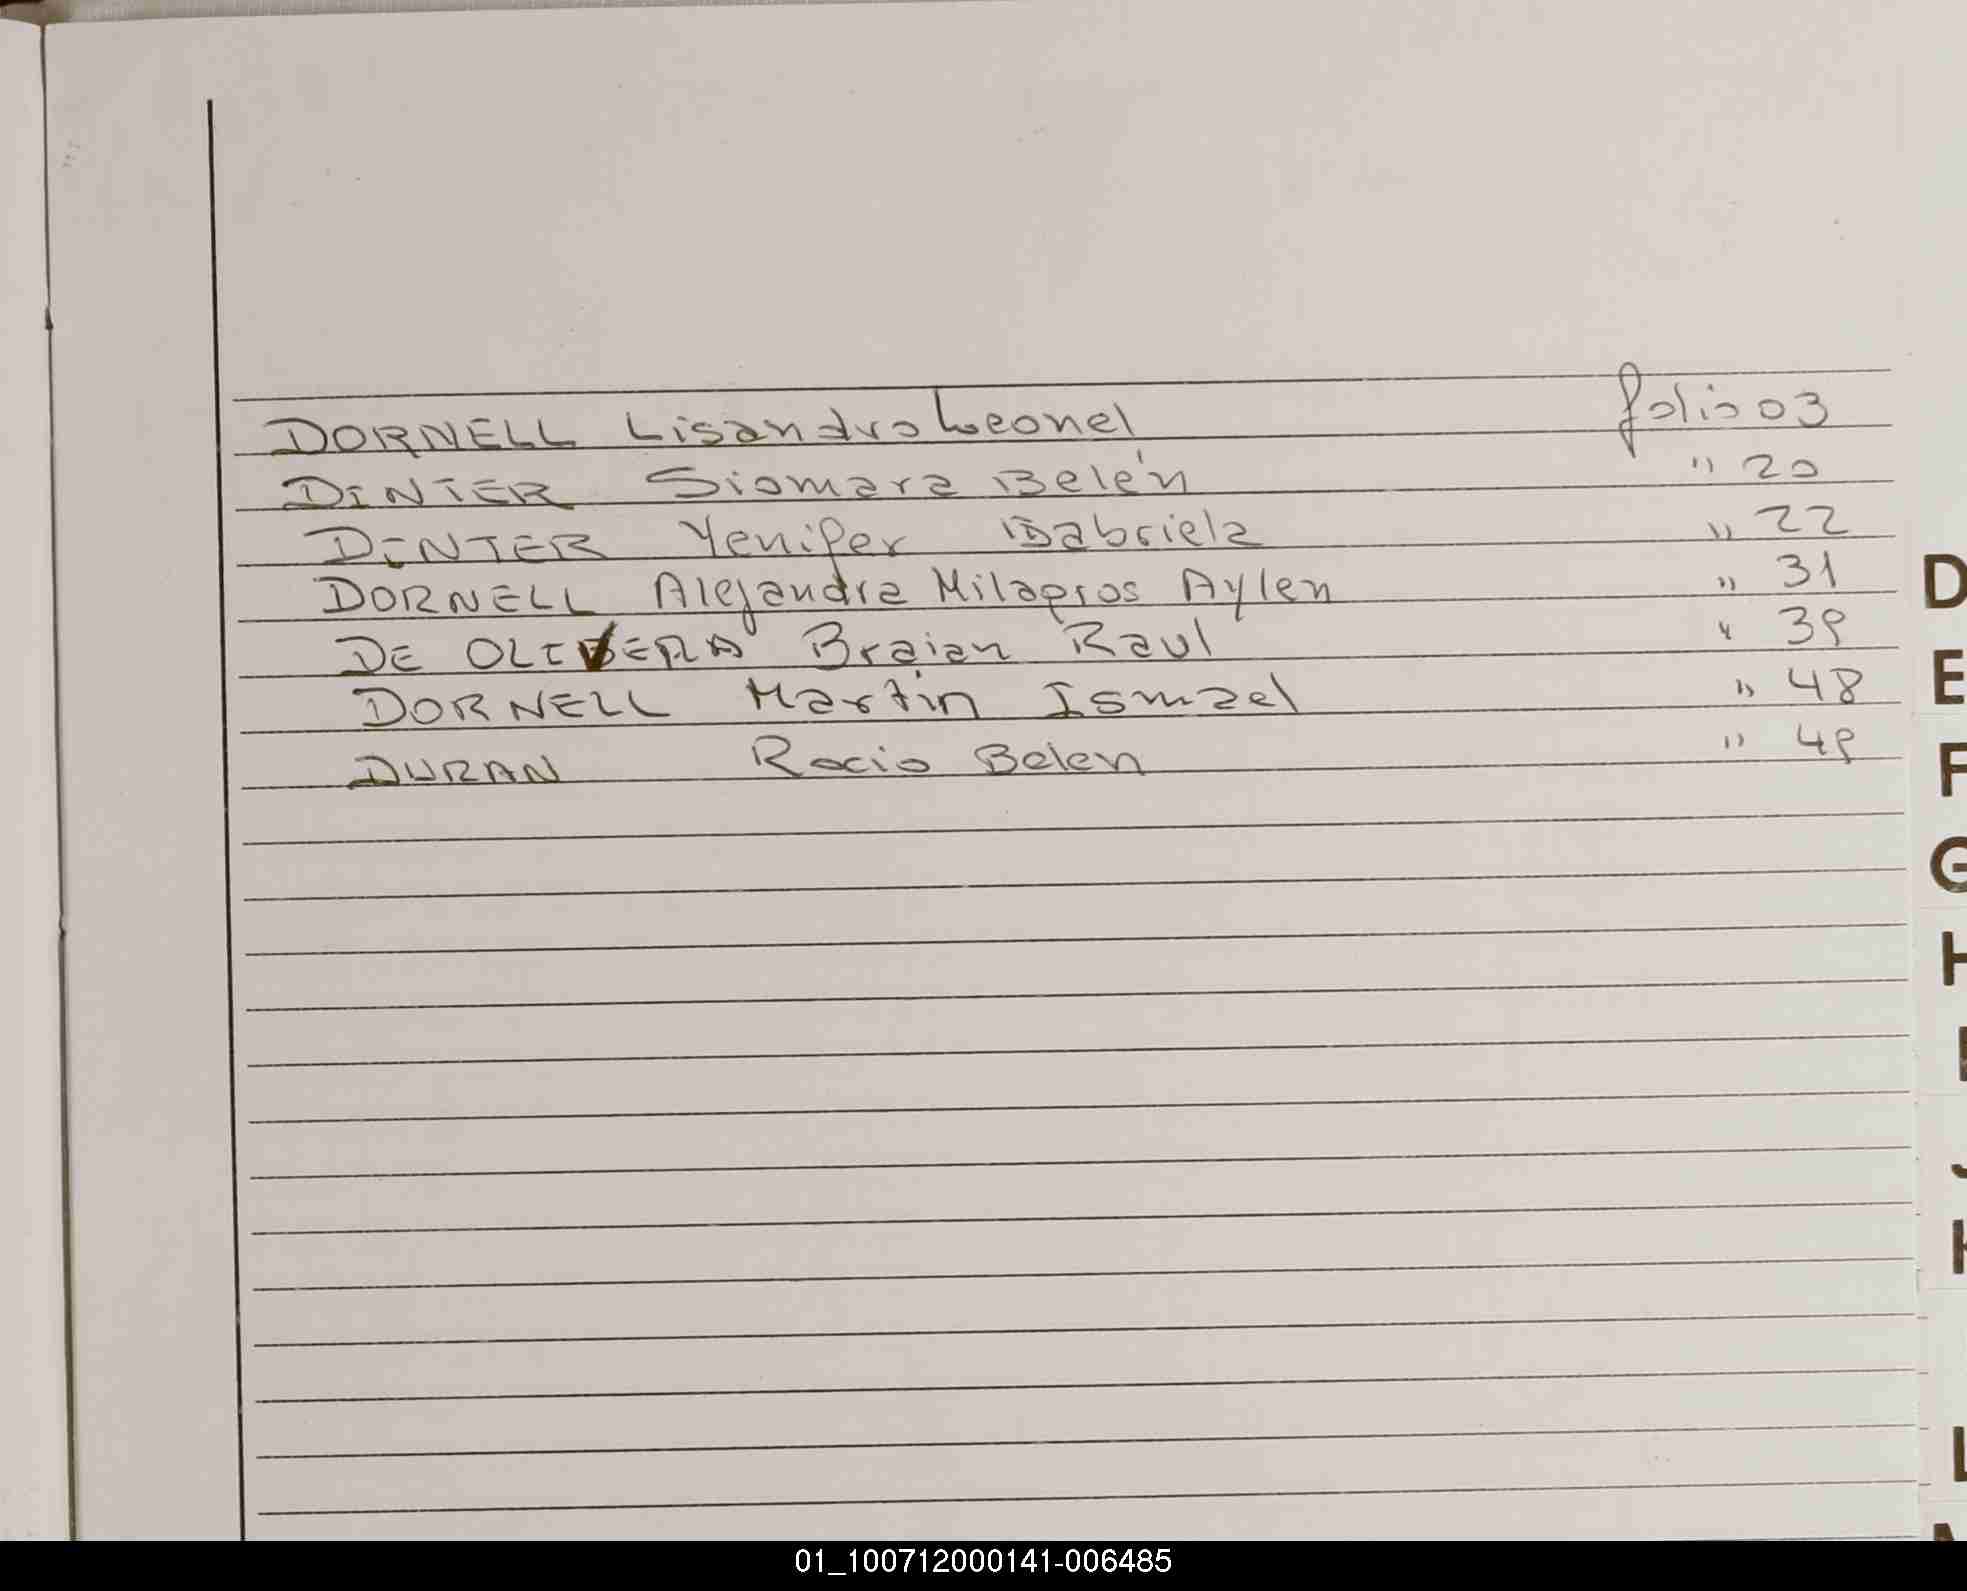 DORNELL Lisandro Leonel folio 03
DINTER Siomara Belén " 20
DINTER Yenifer Gabriela " 22
DORNELL Alejandra Milagros Aylen " 31
DE OLIVERA Braian Raul " 39
DORNELL Martin Ismael " 48
DURAN Rocio Belen " 49
D
E
F
G
H
I
J
K
L
01_100712000141-006485